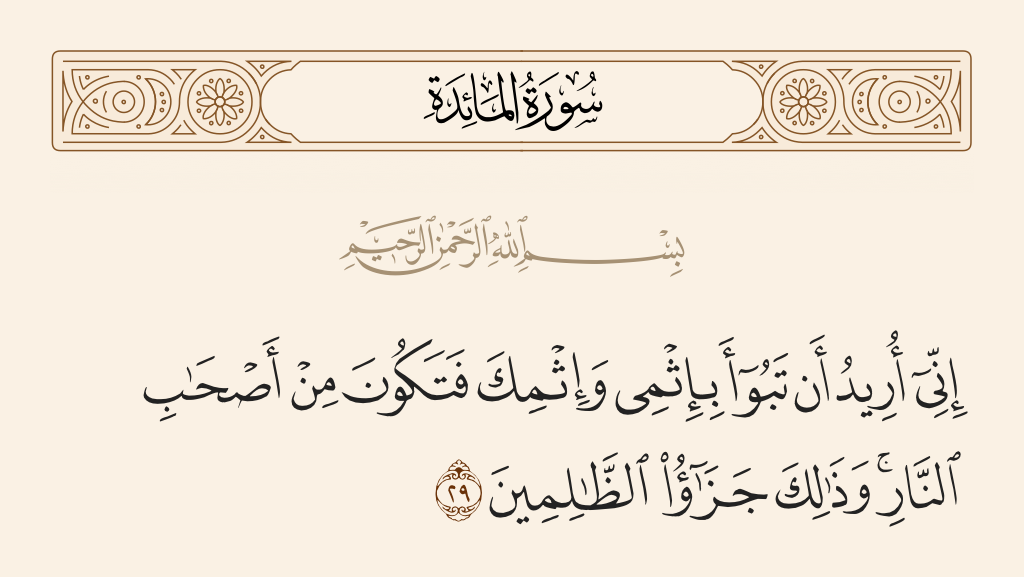 سُورَةُ المَائِدَةِ
بِسْمِ ٱللَّهِ ٱلرَّحْمَٰنِ ٱلرَّحِيمِ
إِنِّىٓ أُرِيدُ أَن تَبُوٓأَ بِإِثْمِى وَإِثْمِكَ فَتَكُونَ مِنْ أَصْحَٰبِ
ٱلنَّارِ ۚ وَذَٰلِكَ جَزَٰٓؤُا۟ ٱلظَّٰلِمِينَ ٢٩